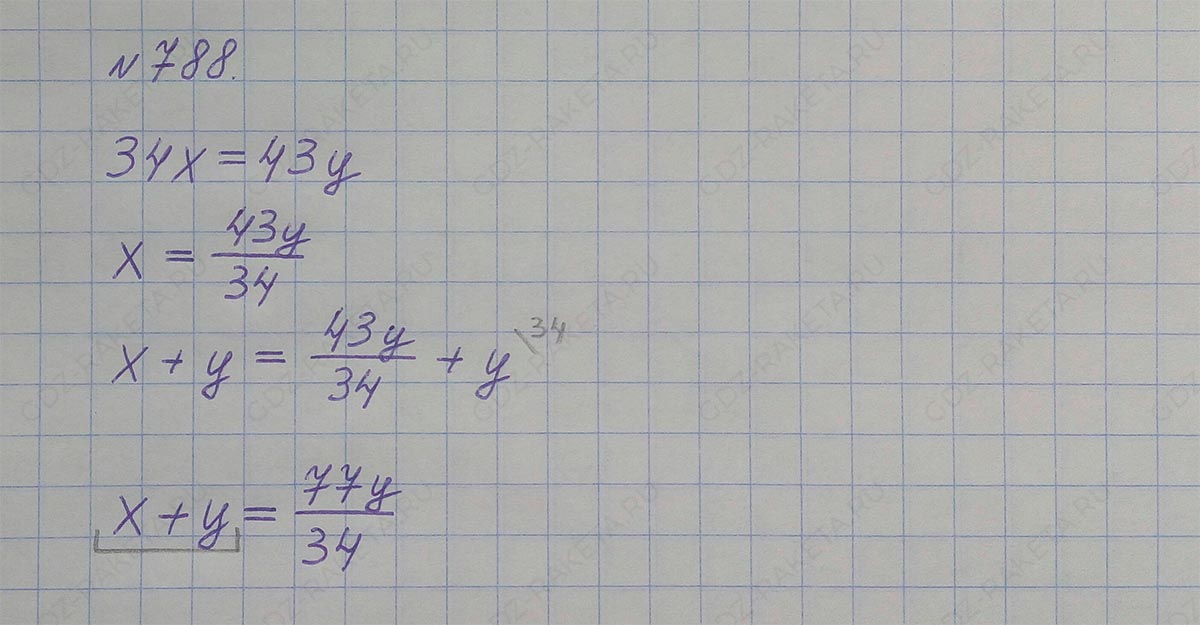 №788.
34x = 43y
x = 43y/34
x + y = 43y/34 + y \34
x + y = 77y/34
GDZ-RAKETA.RU